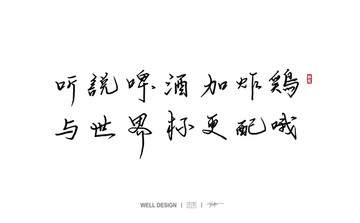 听説啤酒加炸鶏
与世界杯更配哦
WELL DESIGN